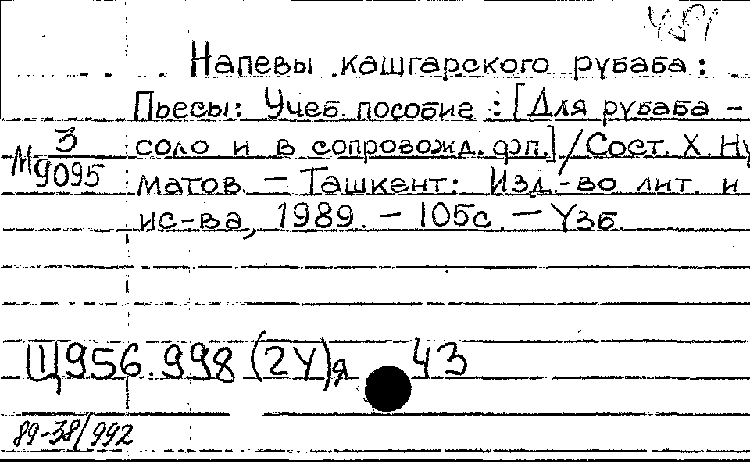 Напевы кашгарского рубаба:
Пьесы: Учеб. пособие: [Для рубаба -
соло и в сопровожд. фп.] / Сост. Х. Ну
матов. — Ташкент: Изд-во лит. и
ис-ва, 1989. — 105с. — Узб.
М 3
9095
Щ956.998(2У)я 43
89-38/992